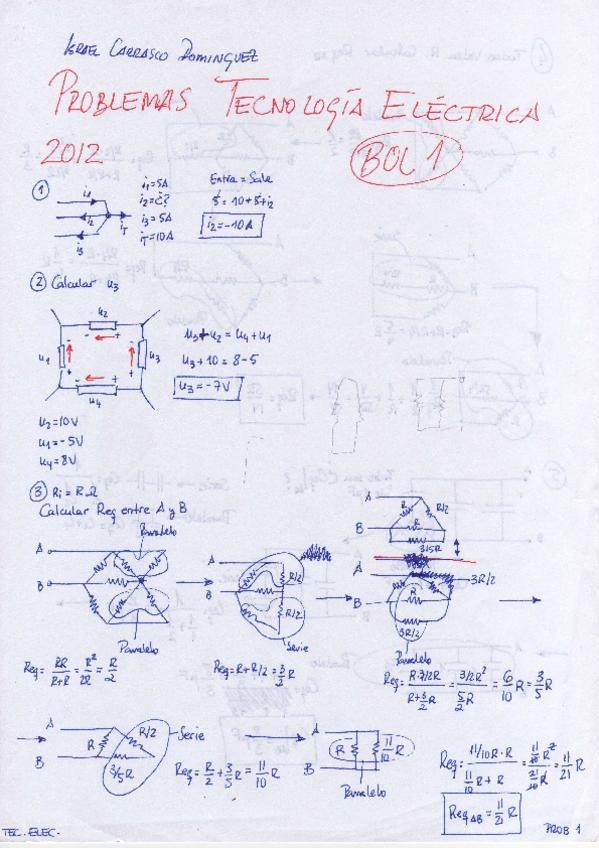 ISRAEL CARRASCO DOMINGUEZ
PROBLEMAS TECNOLOGÍA ELÉCTRICA
2012
BOL 1
1
i1
i2
i3
iT
i1=5A
i2=¿?
i3=5A
iT=10A
Entra = Sale
5 = 10+5+i2
i2=-10A
2 Calcular u3
u2
u1
u3
u4
u3+u2 = u4+u1
u3+10 = 8-5
u3=-7V
u2=10V
u1=-5V
u4=8V
3 Ri=RΩ
Calcular Req entre A y B
Paralelo
A
B
Paralelo
Req= RR/R+R = R²/2R = R/2
A
B
R/2
R/2
Serie
Req=R+R/2=3/2R
A
B
R
R/2
R
3/5R
A
B
R
3R/2
3R/2
Paralelo
Req= R·3/2R/R+3/2R = 3/2R²/5/2R = 6/10R = 3/5R
A
B
R
R/2
3/5R
Serie
Req= R/2+3/5R= 11/10R
A
B
R
11/10R
Paralelo
Req= 11/10R·R/11/10R+R = 11/10R²/21/10R = 11/21R
ReqAB = 11/21R
TEC. ELEC.
PROB 1